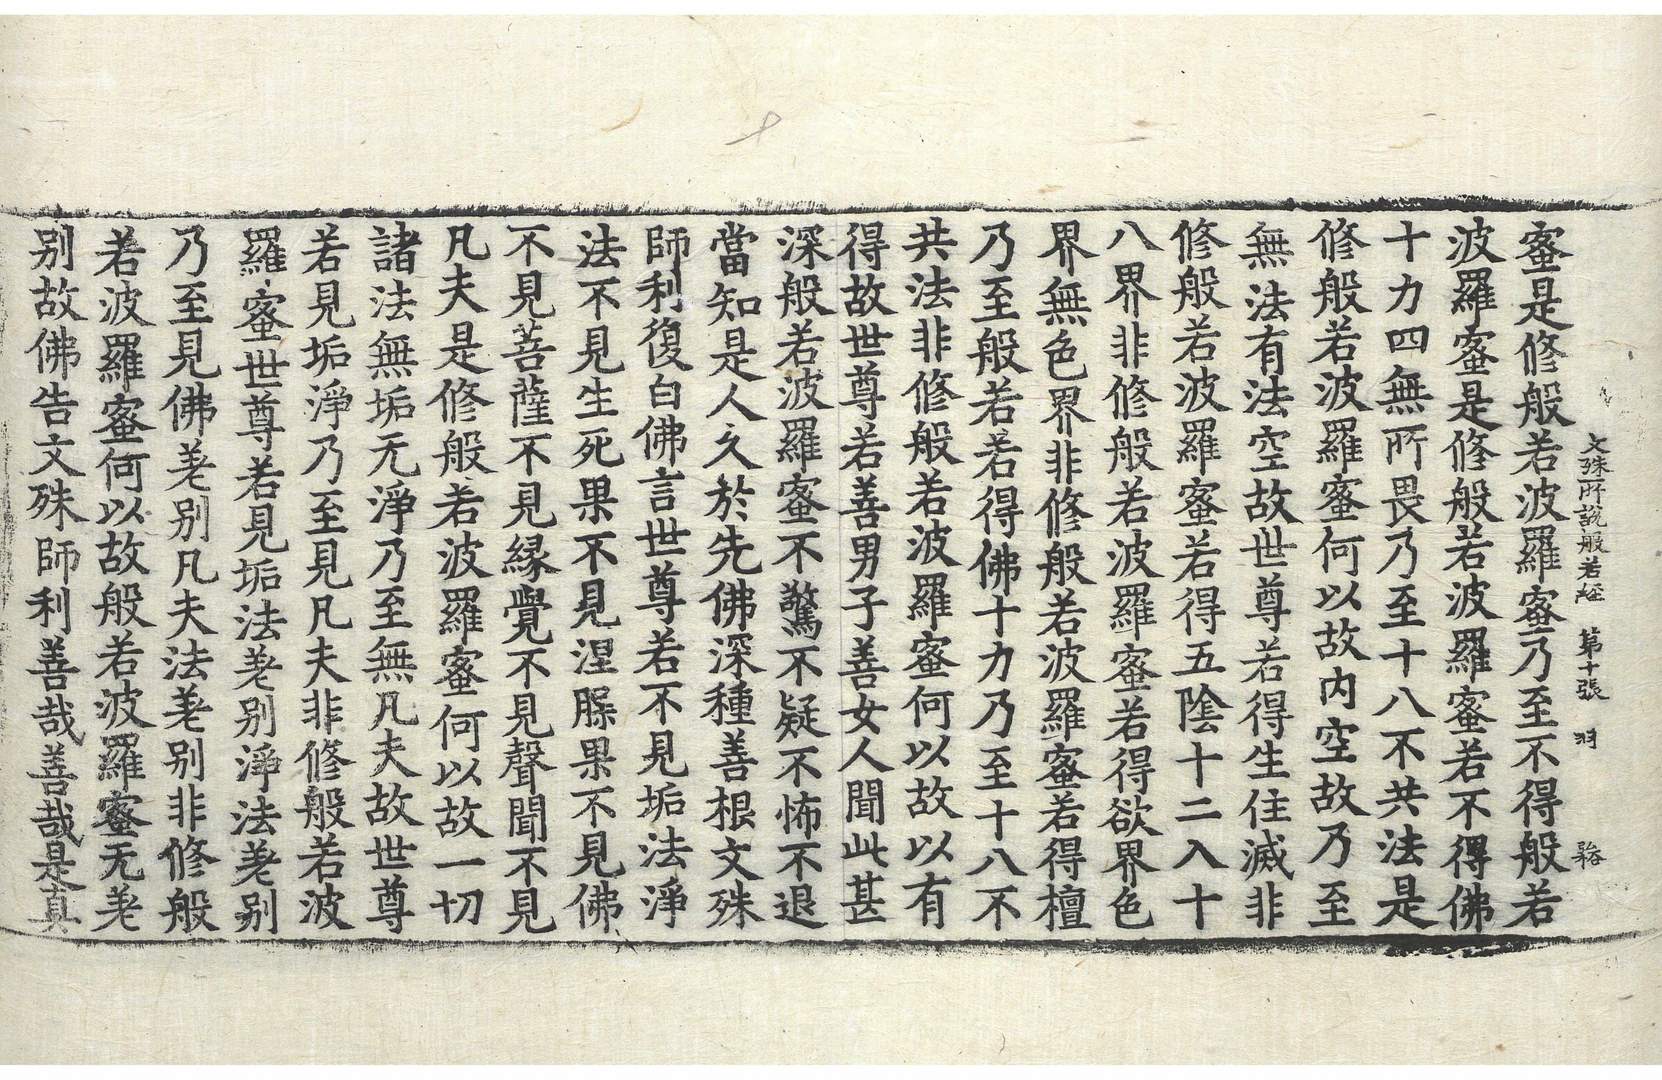 文殊所說般若經 第十張 羽
蜜是修般若波羅蜜乃至不得般若
波羅蜜是修般若波羅蜜若不得佛
十力四無所畏乃至十八不共法是
修般若波羅蜜何以故內空故乃至
無法有法空故世尊若得生住滅非
修般若波羅蜜若得五陰十二入十
八界非修般若波羅蜜若得欲界色
界無色界非修般若波羅蜜若得檀
乃至般若若得佛十力乃至十八不
共法非修般若波羅蜜何以故以有
得故世尊若善男子善女人聞此甚
深般若波羅蜜不驚不疑不怖不退
當知是人久於先佛深種善根文殊
師利復白佛言世尊若不見垢法淨
法不見生死果不見涅槃果不見佛
不見菩薩不見緣覺不見聲聞不見
凡夫是修般若波羅蜜何以故一切
諸法無垢无淨乃至無凡夫故世尊
若見垢淨乃至見凡夫非修般若波
羅蜜世尊若見垢法差別淨法差別
乃至見佛差別凡夫法差別非修般
若波羅蜜何以故般若波羅蜜无差
別故佛告文殊師利善哉善哉是真